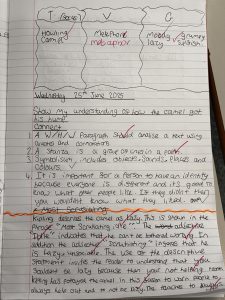 I V G
Howling Metaphor Moody grumpy
Camel metaphor lazy selfish
Wednesday 25th June 2025
Show my understanding of how the camel got
his hump.
Connect
1. A W/H/W Paragraph should analise a text using
quotes and connotations
2. A Stanza is a group of lines in a poem.
3. Symbolism includes objects, Sounds, Places and
Colours.
4. It is important for a person to have an identity
because everyone is different and its good to
know what other people like. If they didn't then
you wouldn't know what they liked
Most Scruciating
Kipling describes the camel as lazy. This is shown in the
Phrase "Most Scruciating idle". The word adjective
"idle" indicates that he can't be bothered working. In
addition the adjective "Scruciating" infers that he
is lazy unbearable. The use of the descriptive
Statement invites the reader to understand that you
Shouldn't be lazy because than your not helping anyone.
Kipling has portrayed the camel in this to warn people to
always help out and to not be lazy. The teacher is